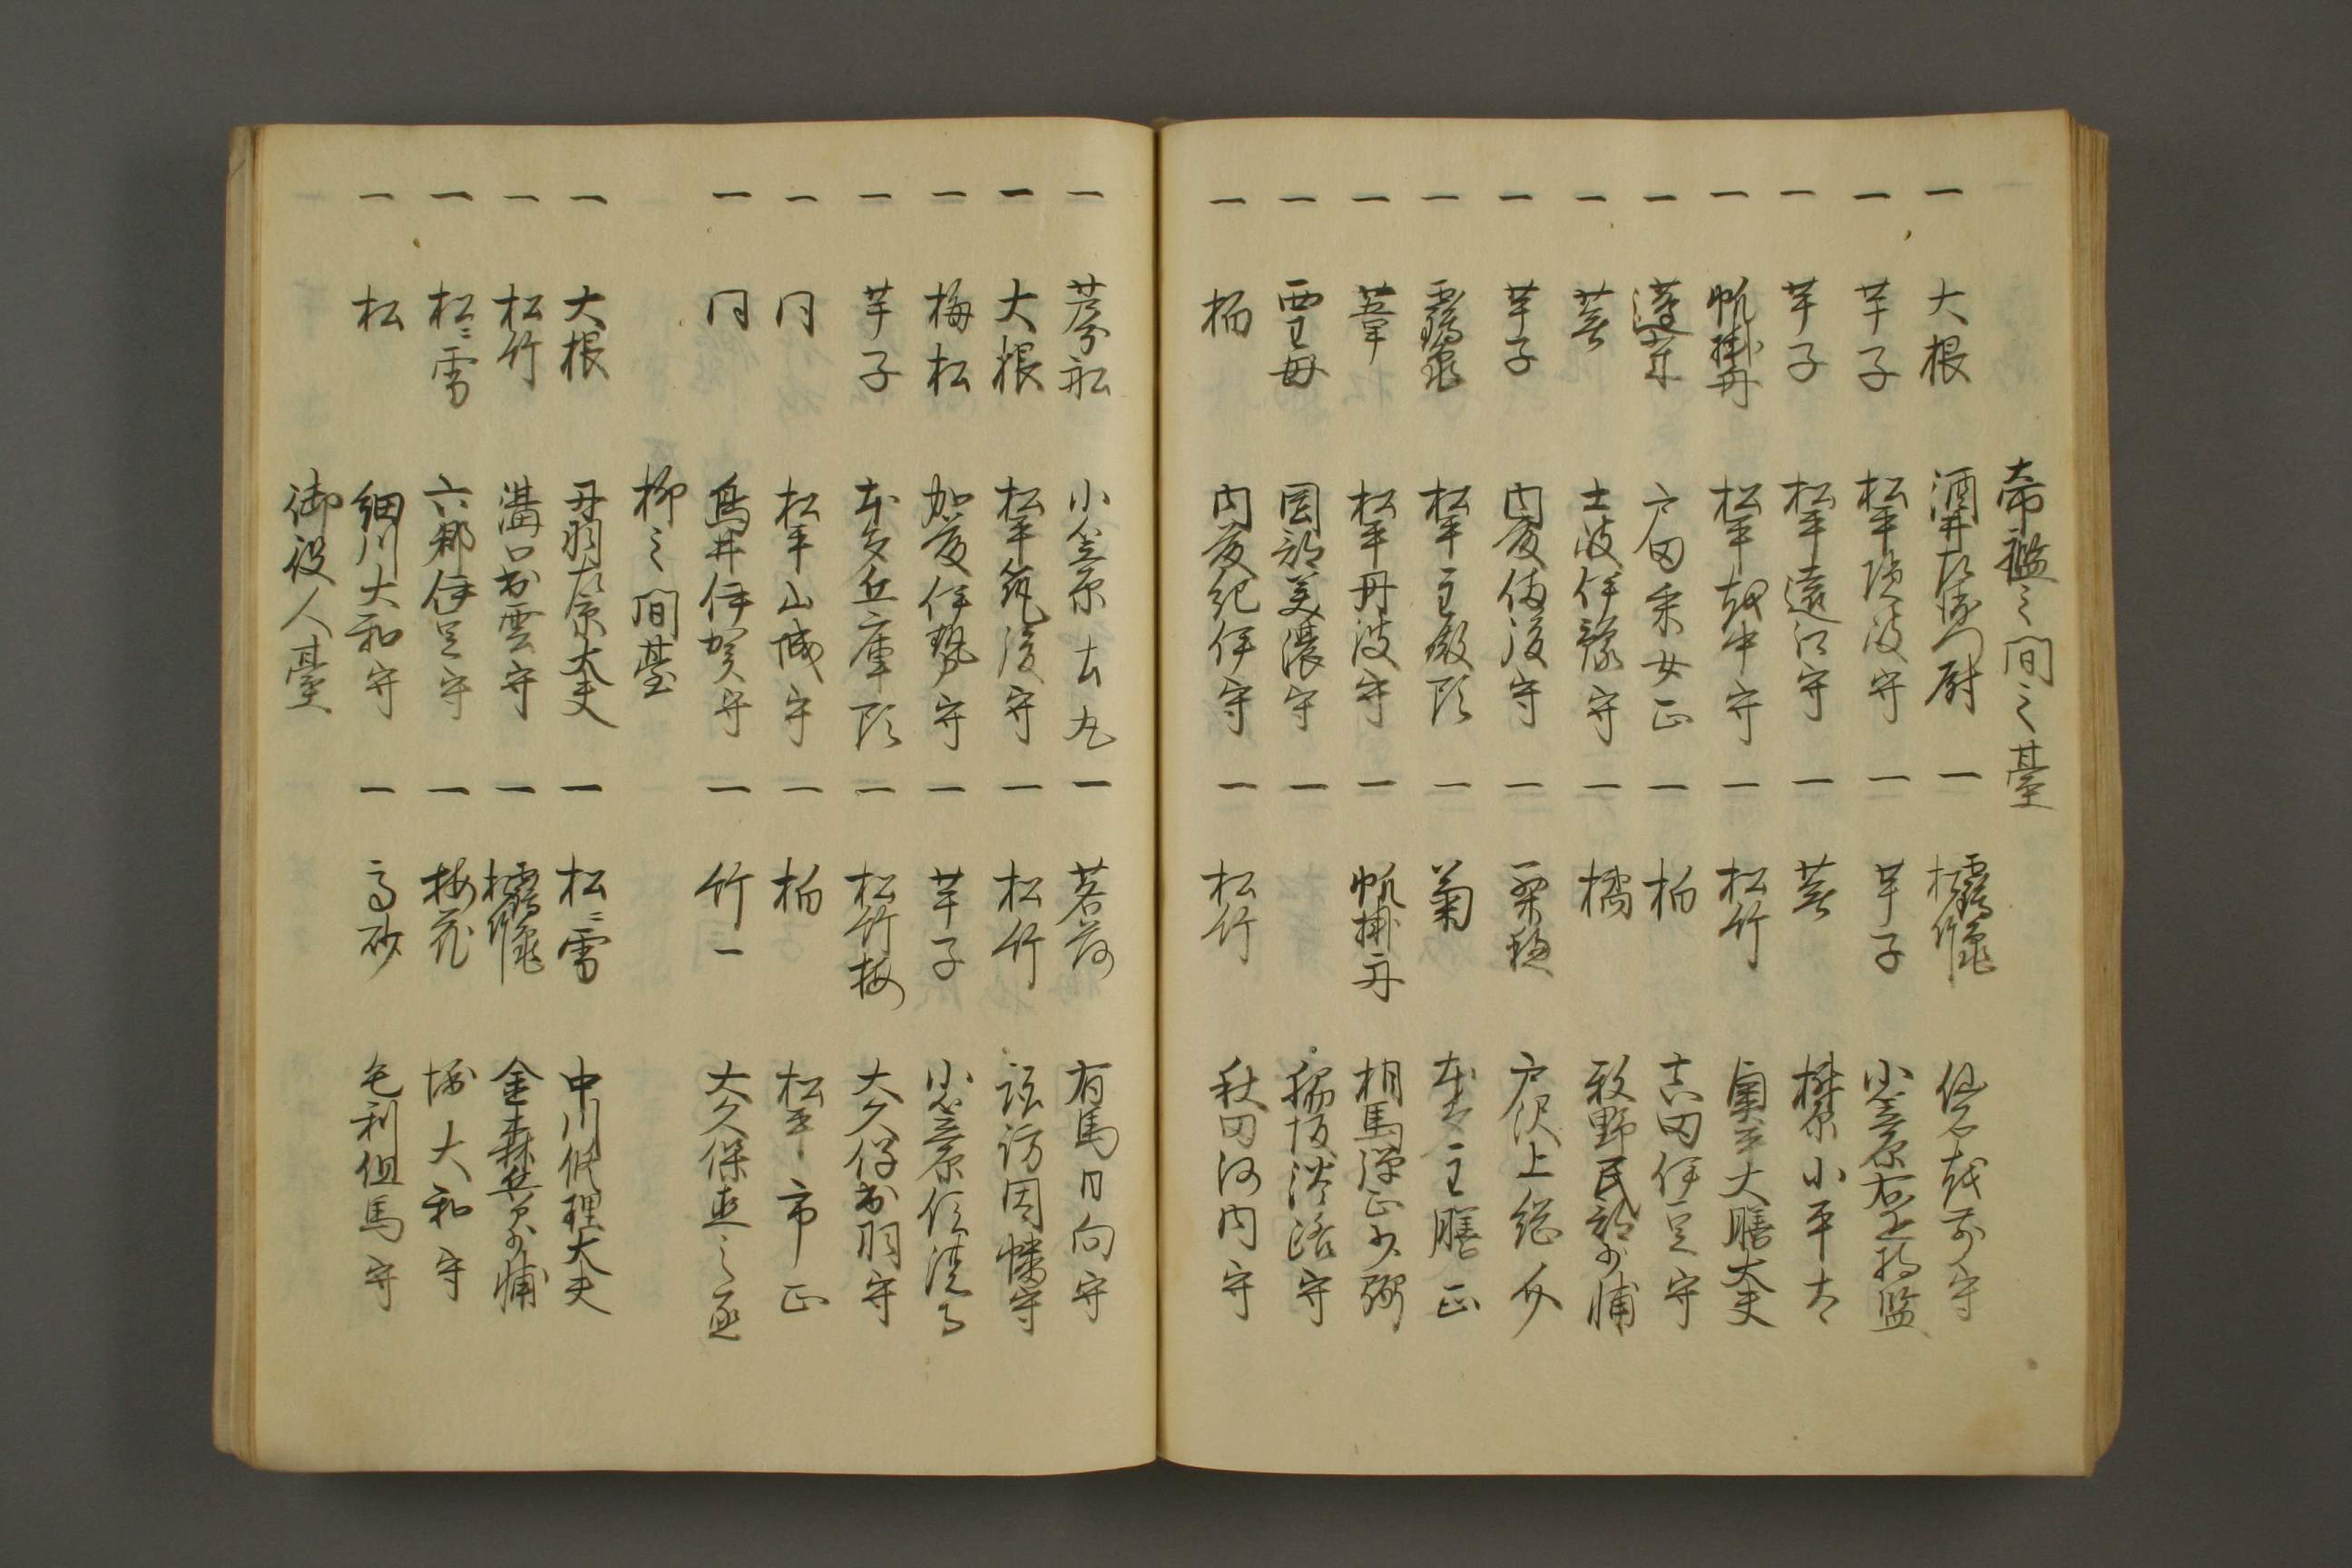 帝鑑之間之臺
一 大根 酒井左衛門尉 一 松竹鶴亀 仙石越前守
一 芋子 松平隠岐守 一 芋子 小笠原右近将監
一 芋子 松平遠江守 一 葵 榊原小平太
一 帆掛舟 松平越中守 一 松竹 奥平大膳大夫
一 蓬莱 戸田采女正 一 柏 真田伊豆守
一 葵 土岐伊豫守 一 橘 牧野民部少輔
一 芋子 内藤備後守 一 粟穂 戸沢上総介
一 鶴亀 松平主殿頭 一 菊 本多主膳正
一 葦 松平丹波守 一 帆掛舟 相馬弾正少弼
一 西王母 岡部美濃守 一 脇坂淡路守
一 柏 内藤紀伊守 一 松竹 秋田河内守
一 小笠原 一 若松 有馬日向守
一 大根 松平筑後守 一 松竹 諏訪因幡守
一 梅松 加藤伊勢守 一 芋子 小笠原信濃守
一 芋子 本多兵庫頭 一 松竹梅 大久保出羽守
一 同 松平山城守 一 柏 松平市正
一 同 鳥井伊賀守 一 竹一 大久保
柳之間臺
一 大根 丹羽左京大夫 一 松ニ雪 中川修理大夫
一 松竹 溝口出雲守 一 松竹鶴亀 金森兵部少輔
一 松ニ雪 六郷伊豆守 一 梅花 大和守
一 松 細川大和守 一 高砂 毛利但馬守
御役人臺